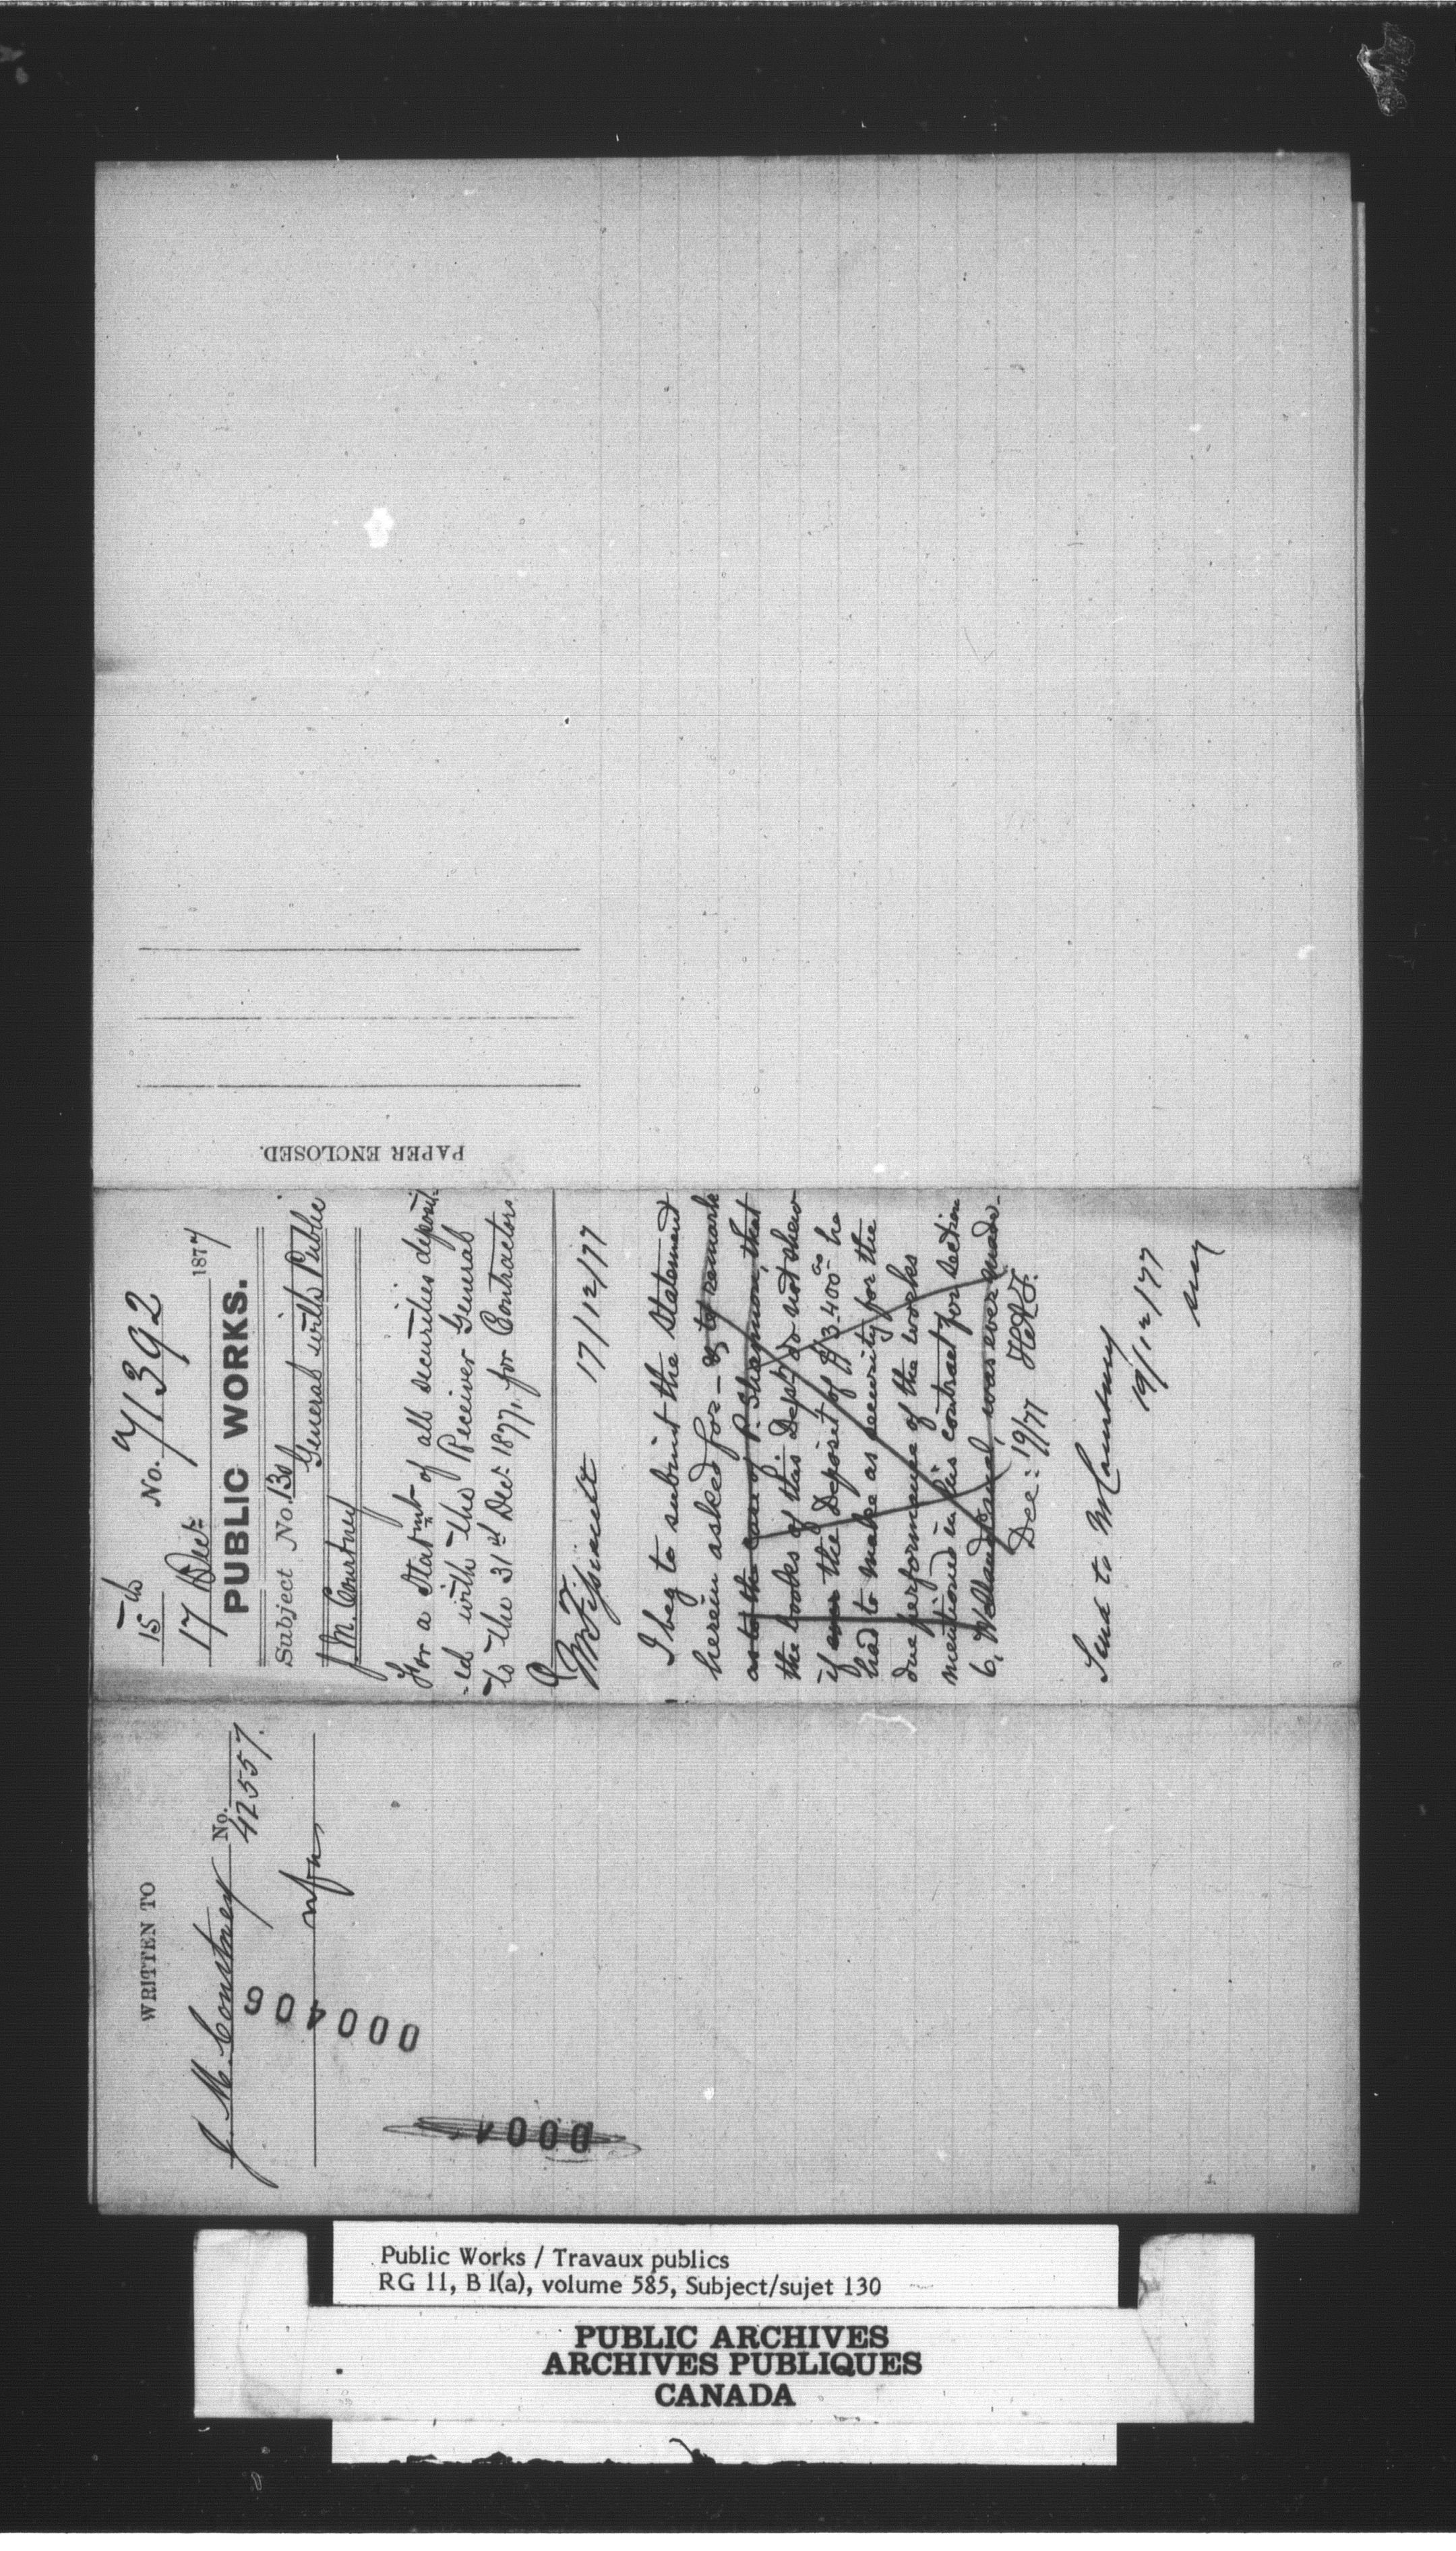 15th No. 71392
17 Dec: 1877
PUBLIC WORKS.
Subject No. 130
General with Public
J. M. Courtney
For a Statmt of all securities deposit-
-ed with the Receiver General
to the 31st Dec: 1877, for Contractors
17/12/77
I beg to submit the Statement
herein asked for - & to remark
as to the case of P. Shannon, that
the books of this Dept do not shew
if ever the Deposit of $3.400 00 he
had to make as security for the
due performance of the works
mentioned in his contract for Section
6, Welland Canal, was ever made.
Dec: 19/77
Send to M Courtney
19/12/77
WRITTEN TO
J. M. Courtney No. 42557.
000406
0004
PAPER ENCLOSED.
Public Works / Travaux publics
RG 11, B 1(a), volume 585, Subject/sujet 130
PUBLIC ARCHIVES
ARCHIVES PUBLIQUES
CANADA